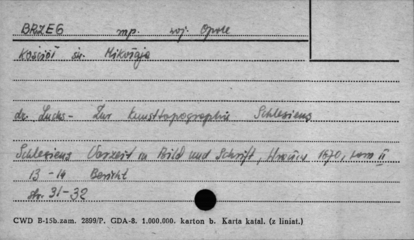 BRZEG mp. woj. Opole
Kościół św. Mikołaja
dr. Luchs - Zur Kunsttopographie Schlesiens
Schlesiens Vorzeit in Bild und Schrift, 1870, tom II
13 - 14 Bericht
str. 31-32
CWD B-15b.zam. 2899/P. GDA-8. 1.000.000. karton b. Karta katal. (z liniat.)